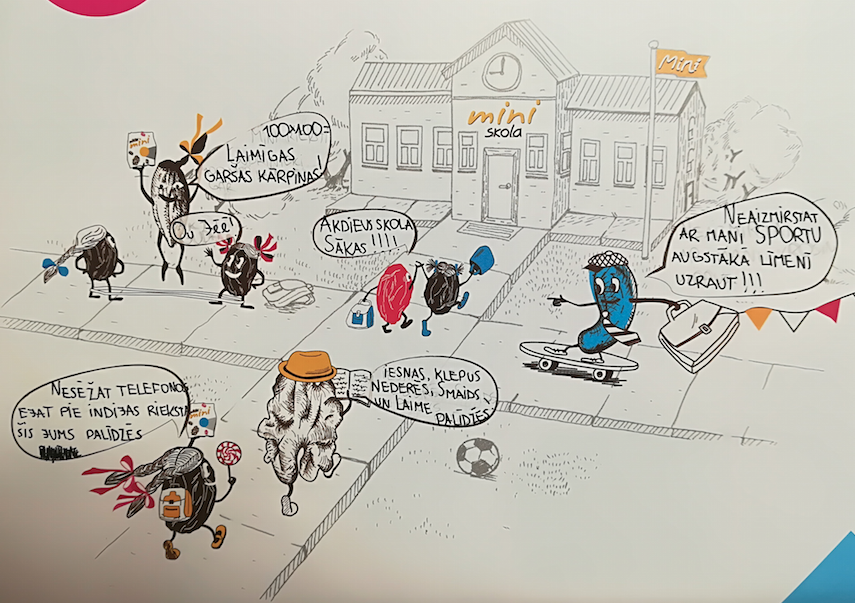 mini
skola
Mini
mini
100×100=
ĻAIMĪGAS
GARŠAS KĀRPIŅAS!
OU JEE!
AKDIEUS SKOLA
SĀKAS !!!!
NEAIZMIRSTAT
AR MANI SPORTU
AUGSTĀKA LĪMENĪ
UZRAUT!!!
IESNAS, KLEPUS
NEDERĒS, SMAIDS
UN LAIME PALĪDZĒS
NESĒŽAT TELEFONOS
EJAT PIE INDIJAS RIEKSTA
ŠIS JUMS PALĪDZĒS
mini